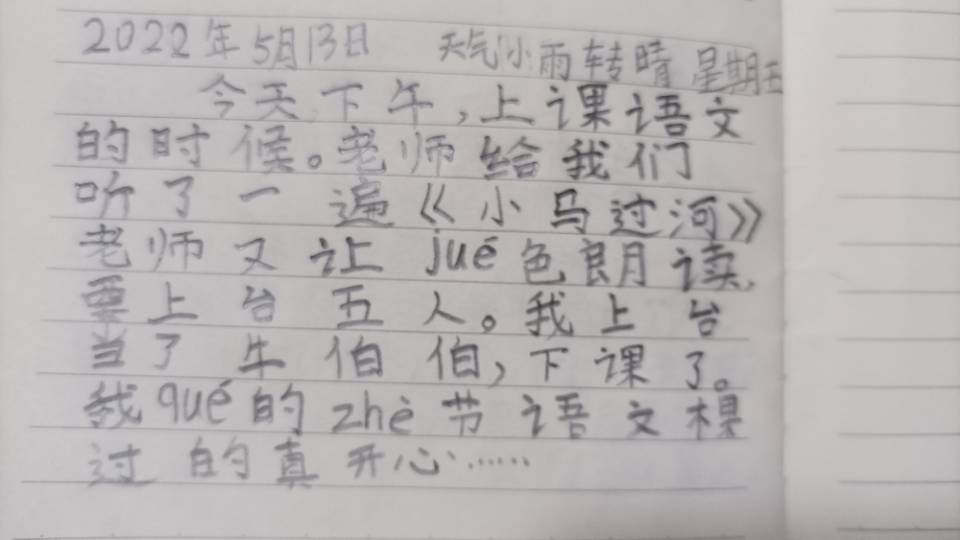 2022年5月13日 天气小雨转晴 星期五
今天下午,上课语文
的时候。老师给我们
听了一遍《小马过河》
老师又让jué色朗读,
要上台五人。我上台
当了牛伯伯,下课了。
我qué的zhè节语文棵
过的真开心……